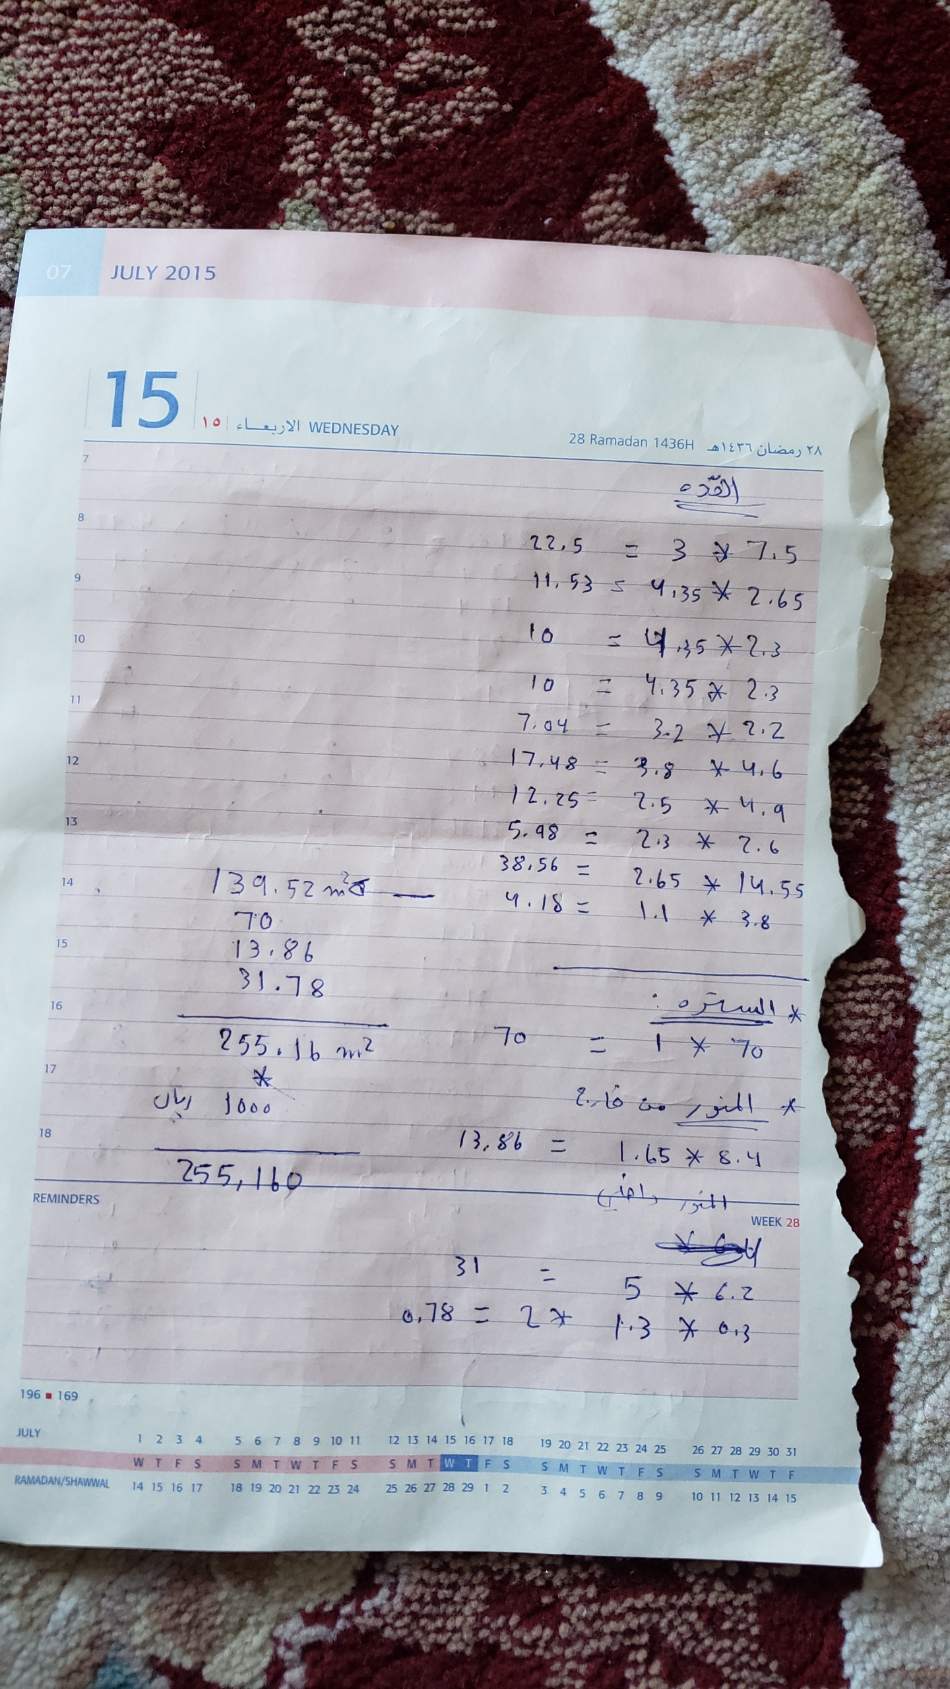 07 JULY 2015
15 ١٥ الاربعاء WEDNESDAY
28 Ramadan 1436H ٢٨ رمضان ١٤٣٦هـ
7
القده
8
22,5 = 3 * 7.5
9
11.53 = 4.35 * 2.65
10
10 = 4.35 * 2.3
10 = 4.35 * 2.3
11
7.04 = 3.2 * 2.2
12
17.48 = 3.8 * 4.6
12.25 = 2.5 * 4.9
13
5.98 = 2.3 * 2.6
38.56 = 2.65 * 14.55
14
4.18 = 1.1 * 3.8
139.52 m² —
70
15
13.86
31.78
16
255.16 m²
*
17
1000 ريال
18
255,160
* الستره :
70 = 1 * 70
* المنور من خارج
13,86 = 1.65 * 8.4
المنور داخلي
REMINDERS
WEEK 28
31 = 5 * 6.2
0.78 = 2 * 1.3 * 0.3
196 ■ 169
JULY 1 2 3 4 5 6 7 8 9 10 11 12 13 14 15 16 17 18 19 20 21 22 23 24 25 26 27 28 29 30 31
W T F S S M T W T F S S M T W T F S S M T W T F S S M T W T F
RAMADAN/SHAWWAL 14 15 16 17 18 19 20 21 22 23 24 25 26 27 28 29 1 2 3 4 5 6 7 8 9 10 11 12 13 14 15